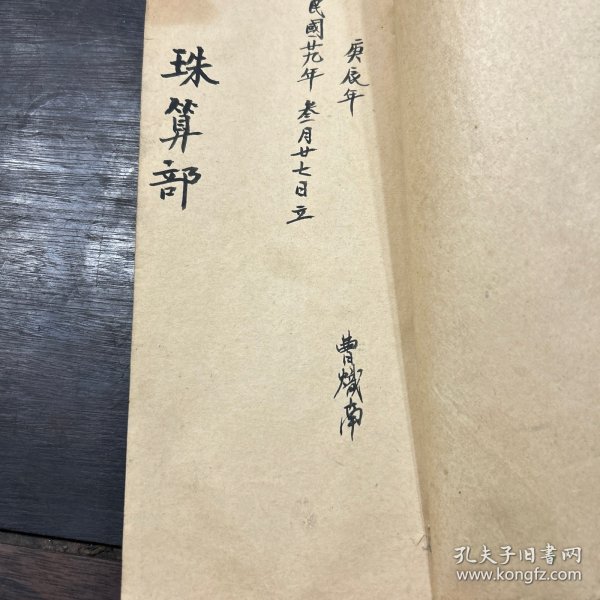 庚辰年
民國廿九年 叁月廿七日立
珠算部
曹熾南
孔夫子旧书网
www.kongfz.com